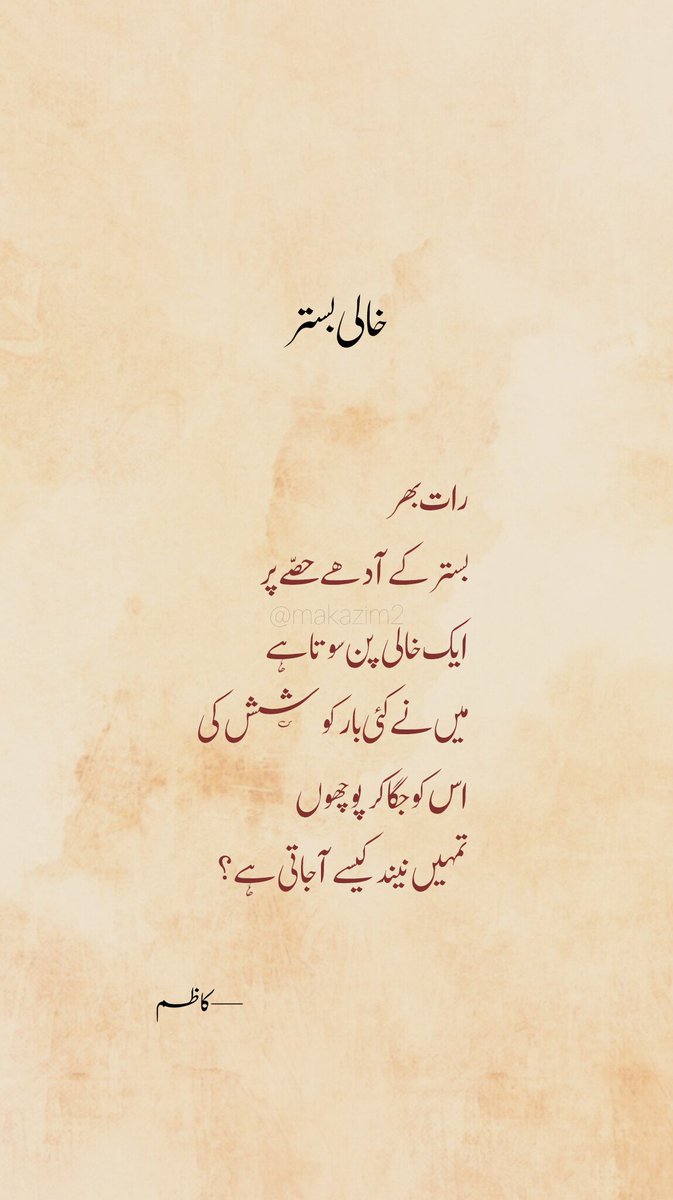 خالی بستر
رات بھر
بستر کے آدھے حصّے پر
@makazim2
ایک خالی پن سوتا ہے
میں نے کئی بار کوشش کی
اس کو جگا کر پوچھوں
تمہیں نیند کیسے آجاتی ہے؟
—کاظم